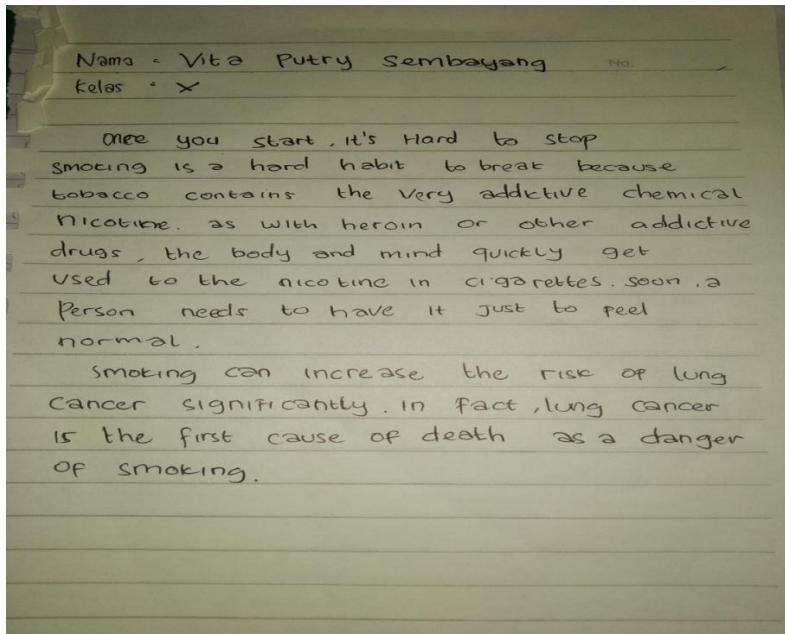 Nama : Vita Putry Sembayang No.
Kelas : X
Once you start, it's Hard to stop
smoking is a hard habit to break because
tobacco contains the very addictive chemical
nicotine. as with heroin or other addictive
drugs, the body and mind quickly get
used to the nicotine in cigarettes. soon, a
Person needs to have it Just to peel
normal.
smoking can increase the risk of lung
cancer significantly. in fact, lung cancer
is the first cause of death as a danger
of smoking.